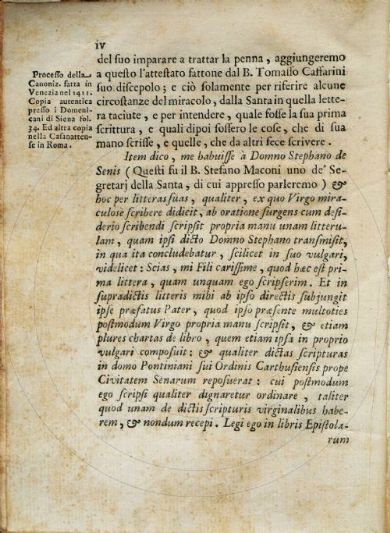 iv
del suo imparare a trattar la penna, aggiungeremo
a questo l'attestato fattone dal B. Tomasso Caffarini
suo discepolo; e ciò solamente per riferire alcune
circostanze del miracolo, dalla Santa in quella lette-
ra taciute, e per intendere, quale fosse la sua prima
scrittura, e quali dipoi fossero le cose, che di sua
mano scrisse, e quelle, che da altri fece scrivere.
Processo della
Canoniz. fatta in
Venezia nel 1411.
Copia autentica
presso i Domeni-
cani di Siena fol.
34. Ed altra copia
nella Casanatten-
se in Roma.
Item dico, me habuisse à Domno Stephano de
Senis (Questi fu il B. Stefano Maconi uno de' Se-
gretarj della Santa, di cui appresso parleremo) &
hoc per litteras suas, qualiter, ex quo Virgo mira-
culose scribere didicit, ab oratione surgens cum desi-
derio scribendi scripsit propria manu unam litteru-
lam, quam ipsi dicto Domno Stephano transmisit,
in qua ita concludebatur, scilicet in suo vulgari,
videlicet: Scias, mi Fili carissime, quod hæc est pri-
ma littera, quam unquam ego scripserim. Et in
supradictis litteris mihi ab ipso directis subjungit
ipse præfatus Pater, quod ipso præsente multoties
postmodum Virgo propria manu scripsit, & etiam
plures chartas de libro, quem etiam ipsa in proprio
vulgari composuit: & qualiter dictas scripturas
in domo Pontiniani sui Ordinis Carthusiensis prope
Civitatem Senarum reposuerat: cui postmodum
ego scripsi qualiter dignaretur ordinare, taliter
quod unam de dictis scripturis virginalibus habe-
rem, & nondum recepi. Legi ego in libris Epistola-
rum